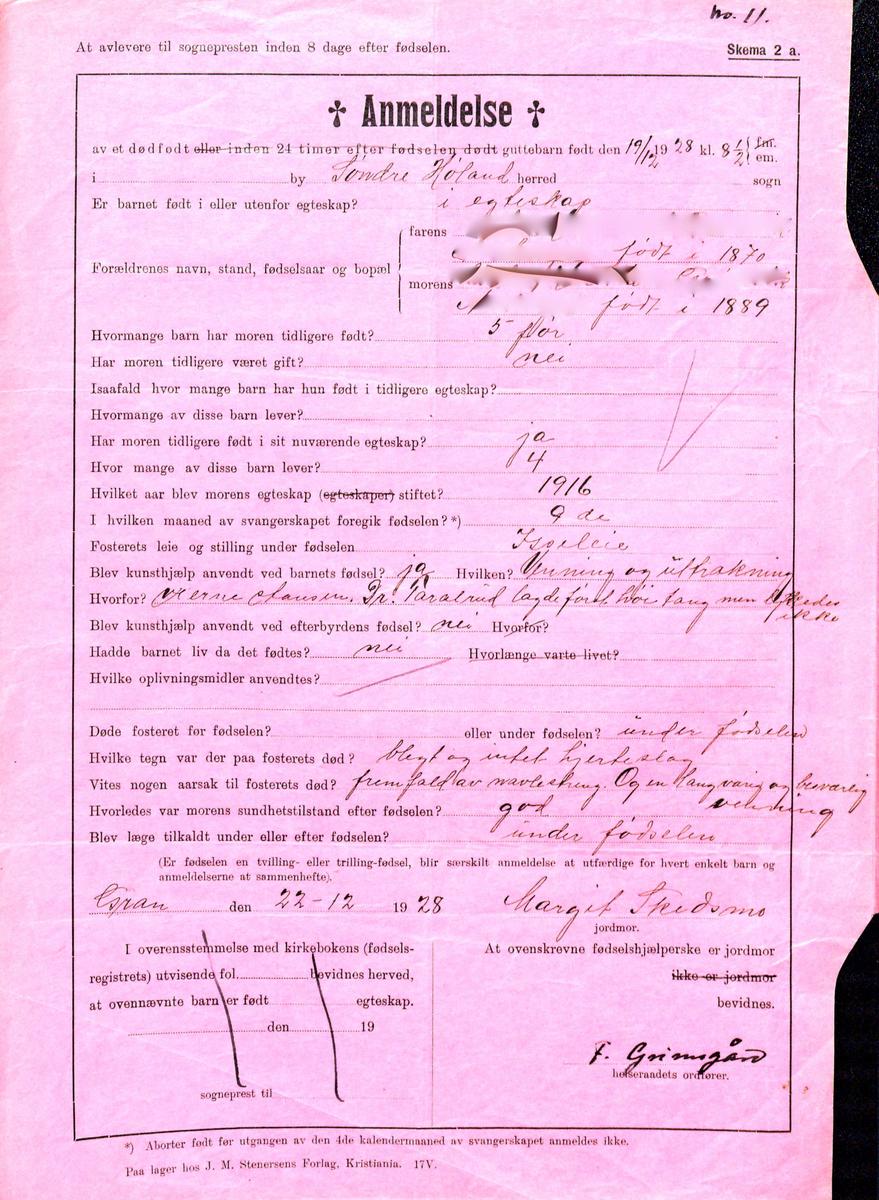 no. 11.
At avlevere til sognepresten inden 8 dage efter fødselen.
Skema 2 a.
✝ Anmeldelse ✝
av et dødfødt eller inden 24 timer efter fødselen dødt guttebarn født den 19/12 1928 kl. 8 1/2 fm. em.
i by Søndre Høland herred sogn
Er barnet født i eller utenfor egteskap? i egteskap
farens
Forældrenes navn, stand, fødselsaar og bopæl
født i 1870
morens
født i 1889
Hvormange barn har moren tidligere født? 5 før
Har moren tidligere været gift? nei
Isaafald hvor mange barn har hun født i tidligere egteskap?
Hvormange av disse barn lever?
Har moren tidligere født i sit nuværende egteskap? ja
Hvor mange av disse barn lever? 4
Hvilket aar blev morens egteskap (egteskaper) stiftet? 1916
I hvilken maaned av svangerskapet foregik fødselen? *) 9 de
Fosterets leie og stilling under fødselen
Blev kunsthjælp anvendt ved barnets fødsel? ja Hvilken? Vening og uttrakning
Hvorfor? lagde først høi tang men lykkedes ikke
Blev kunsthjælp anvendt ved efterbyrdens fødsel? nei Hvorfor?
Hadde barnet liv da det fødtes? nei Hvorlænge varte livet?
Hvilke oplivningsmidler anvendtes?
Døde fosteret før fødselen? eller under fødselen? under fødselen
Hvilke tegn var der paa fosterets død? blegt og intet hjerteslag
Vites nogen aarsak til fosterets død? fremfald av navlestreng. Og en langvarig og besværlig vening
Hvorledes var morens sundhetstilstand efter fødselen? god
Blev læge tilkaldt under eller efter fødselen? under fødselen
(Er fødselen en tvilling- eller trilling-fødsel, blir særskilt anmeldelse at utfærdige for hvert enkelt barn og
anmeldelserne at sammenhefte).
Gran den 22-12 1928 Margit Skedsmo
jordmor.
I overensstemmelse med kirkebokens (fødsels-
registrets) utvisende fol. bevidnes herved,
at ovennævnte barn er født egteskap.
den 19
sogneprest til
At ovenskrevne fødselshjælperske er jordmor
ikke er jordmor
bevidnes.
F. Grimsgård
helseraadets ordfører.
*) Aborter født før utgangen av den 4de kalendermaaned av svangerskapet anmeldes ikke.
Paa lager hos J. M. Stenersens Forlag, Kristiania. 17V.